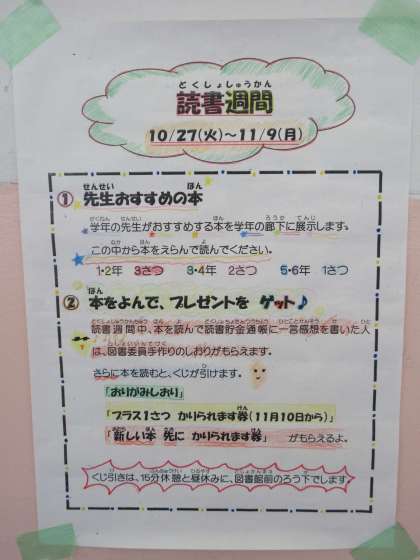 どくしょしゅうかん
読書週間
10/27(火)~11/9(月)
せんせい ほん
① 先生おすすめの本
がくねん せんせい ほん がくねん ろうか てんじ
学年の先生がおすすめする本を学年の廊下に展示します。
なか ほん よ
この中から本をえらんで読んでください。
1・2年 3さつ 3・4年 2さつ 5・6年 1さつ
ほん
② 本をよんで、プレゼントを ゲット♪
読書週間中、本を読んで読書貯金通帳に一言感想を書いた人
は、図書委員手作りのしおりがもらえます。
さらに本を読むと、くじが引けます。
「おりがみしおり」
「プラス1さつ かりられます券(11月10日から)」
「新しい本 先に かりられます券」 がもらえるよ。
くじ引きは、15分休憩と昼休みに、図書館前のろう下でします